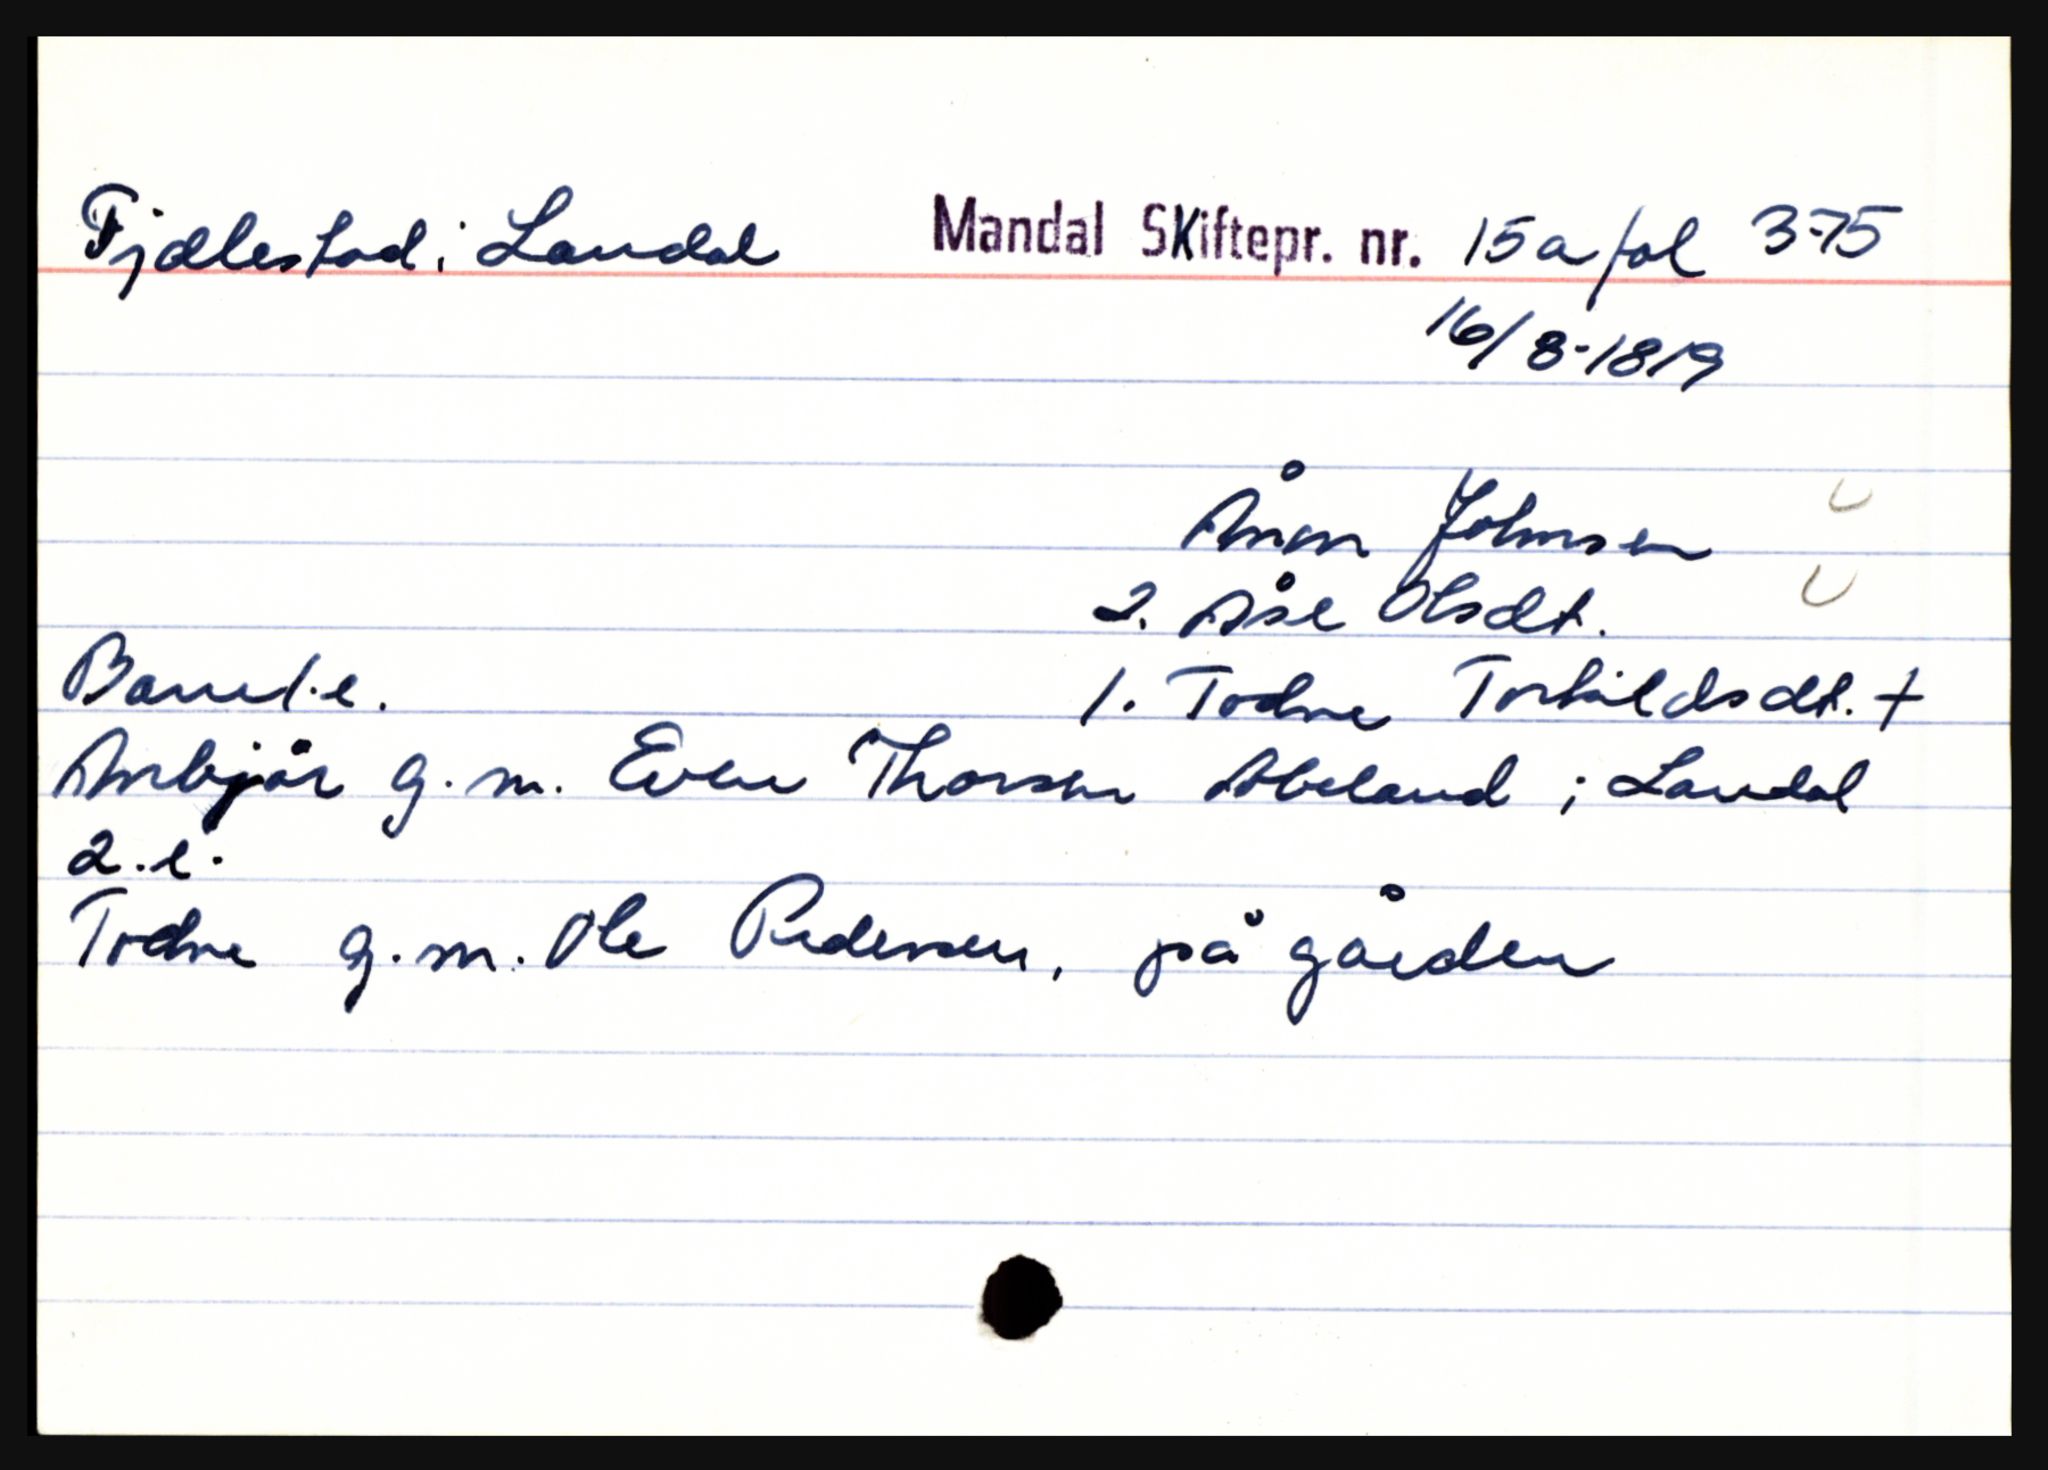 Fjellestad i Laudal Mandal Skiftepr. nr. 15a fol 375
16/8-1819
Ånon Johnsen
2. Åse Olsdt.
Barn 1.e. 1. Todne Torkildsdt. +
Anbjør g.m. Even Thorsen Abeland i Laudal
2.e.
Todne g.m. Ole Pedersen, på gården